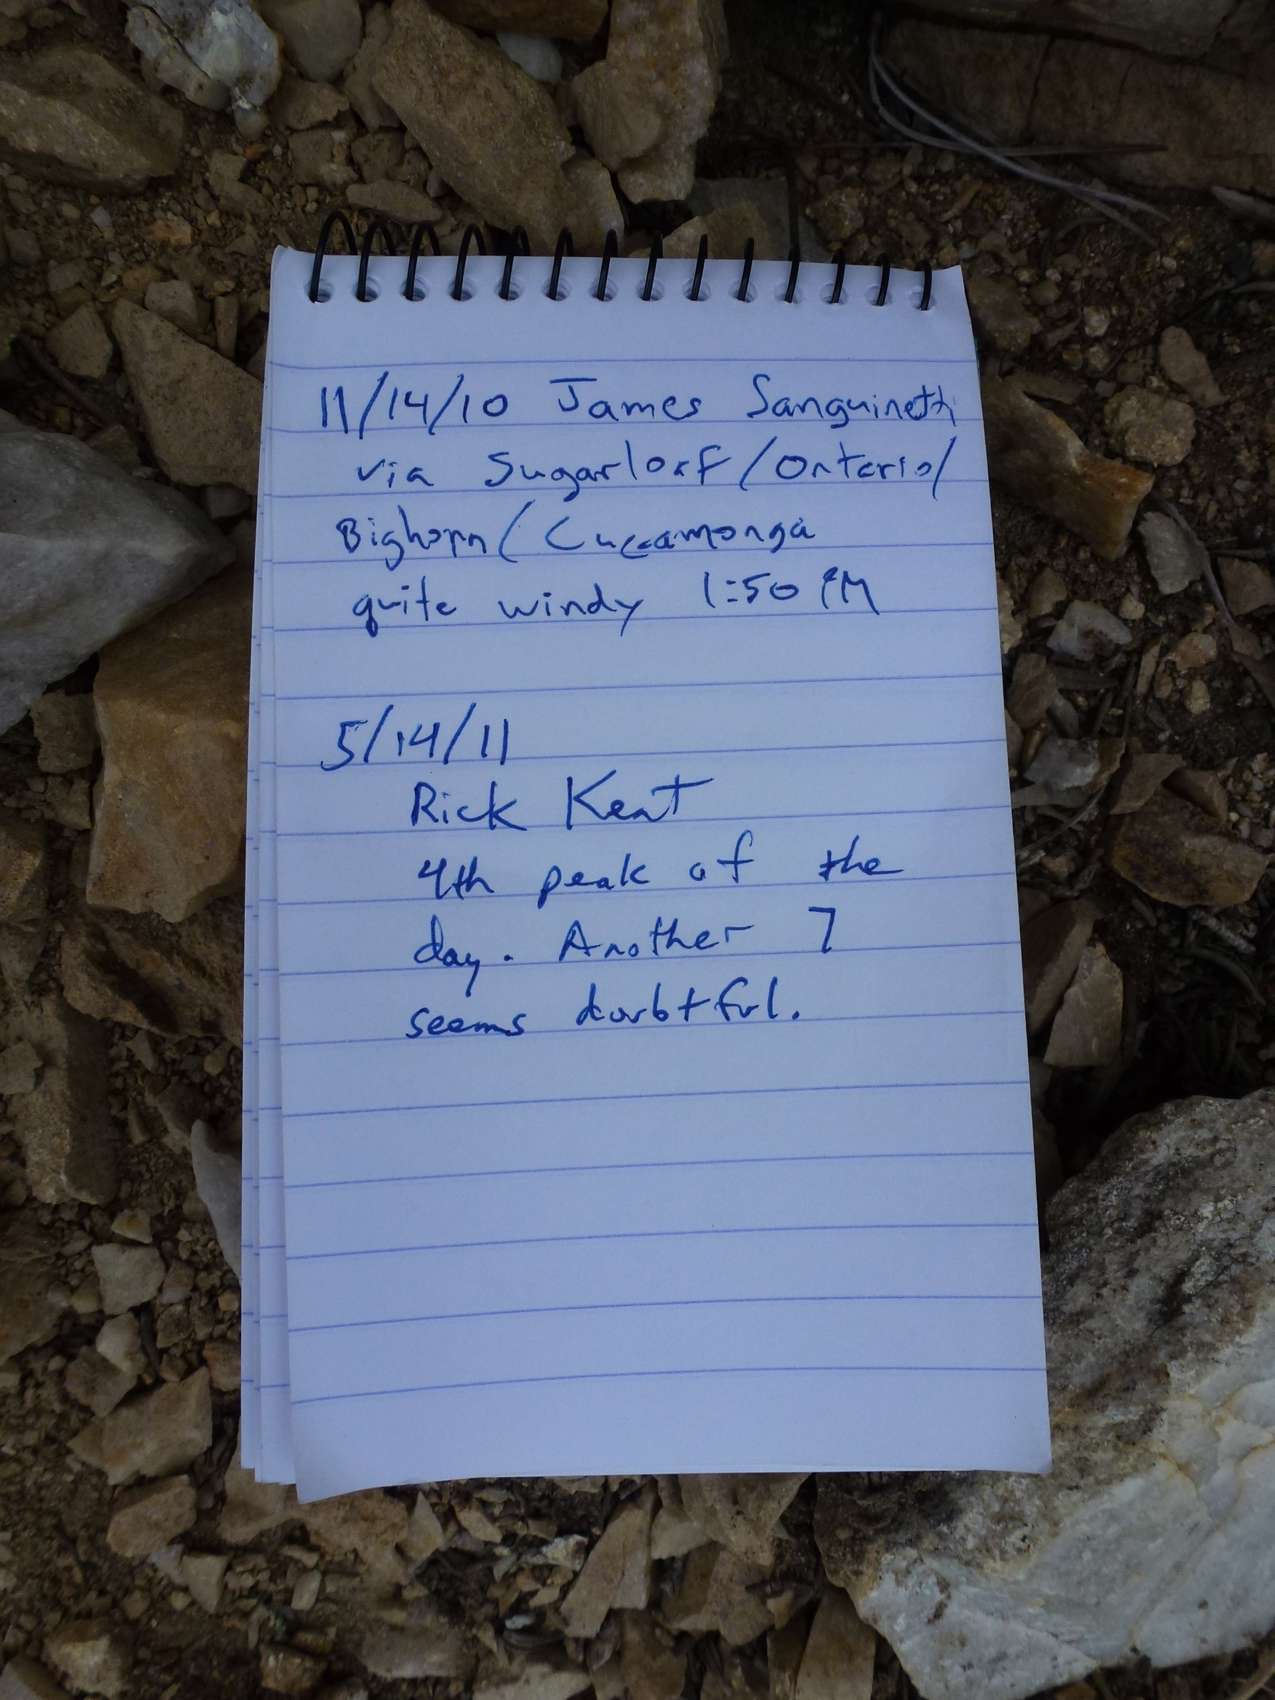 11/14/10 James Sanguinetti
via Sugarloaf/Ontario/
Bighorn/Cuccamonga
quite windy 1:50 PM
5/14/11
Rick Kent
4th peak of the
day. Another 7
seems doubtful.